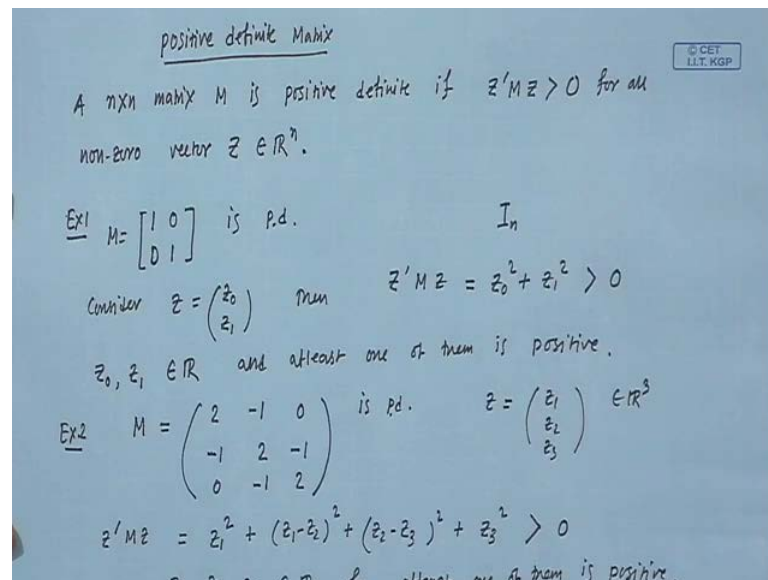 positive definite Matrix
© CET
I.I.T. KGP
A nxn matrix M is positive definite if Z'MZ > 0 for all
non-zero vector Z ∈ ℝⁿ.
Ex1 M= [1 0; 0 1] is p.d. Iₙ
Consider Z = (z₀; z₁) Then Z'MZ = z₀² + z₁² > 0
z₀, z₁ ∈ ℝ and atleast one of them is positive.
Ex2 M = (2 -1 0; -1 2 -1; 0 -1 2) is pd. Z = (z₁; z₂; z₃) ∈ ℝ³
Z'MZ = z₁² + (z₁-z₂)² + (z₂-z₃)² + z₃² > 0
of them is positive